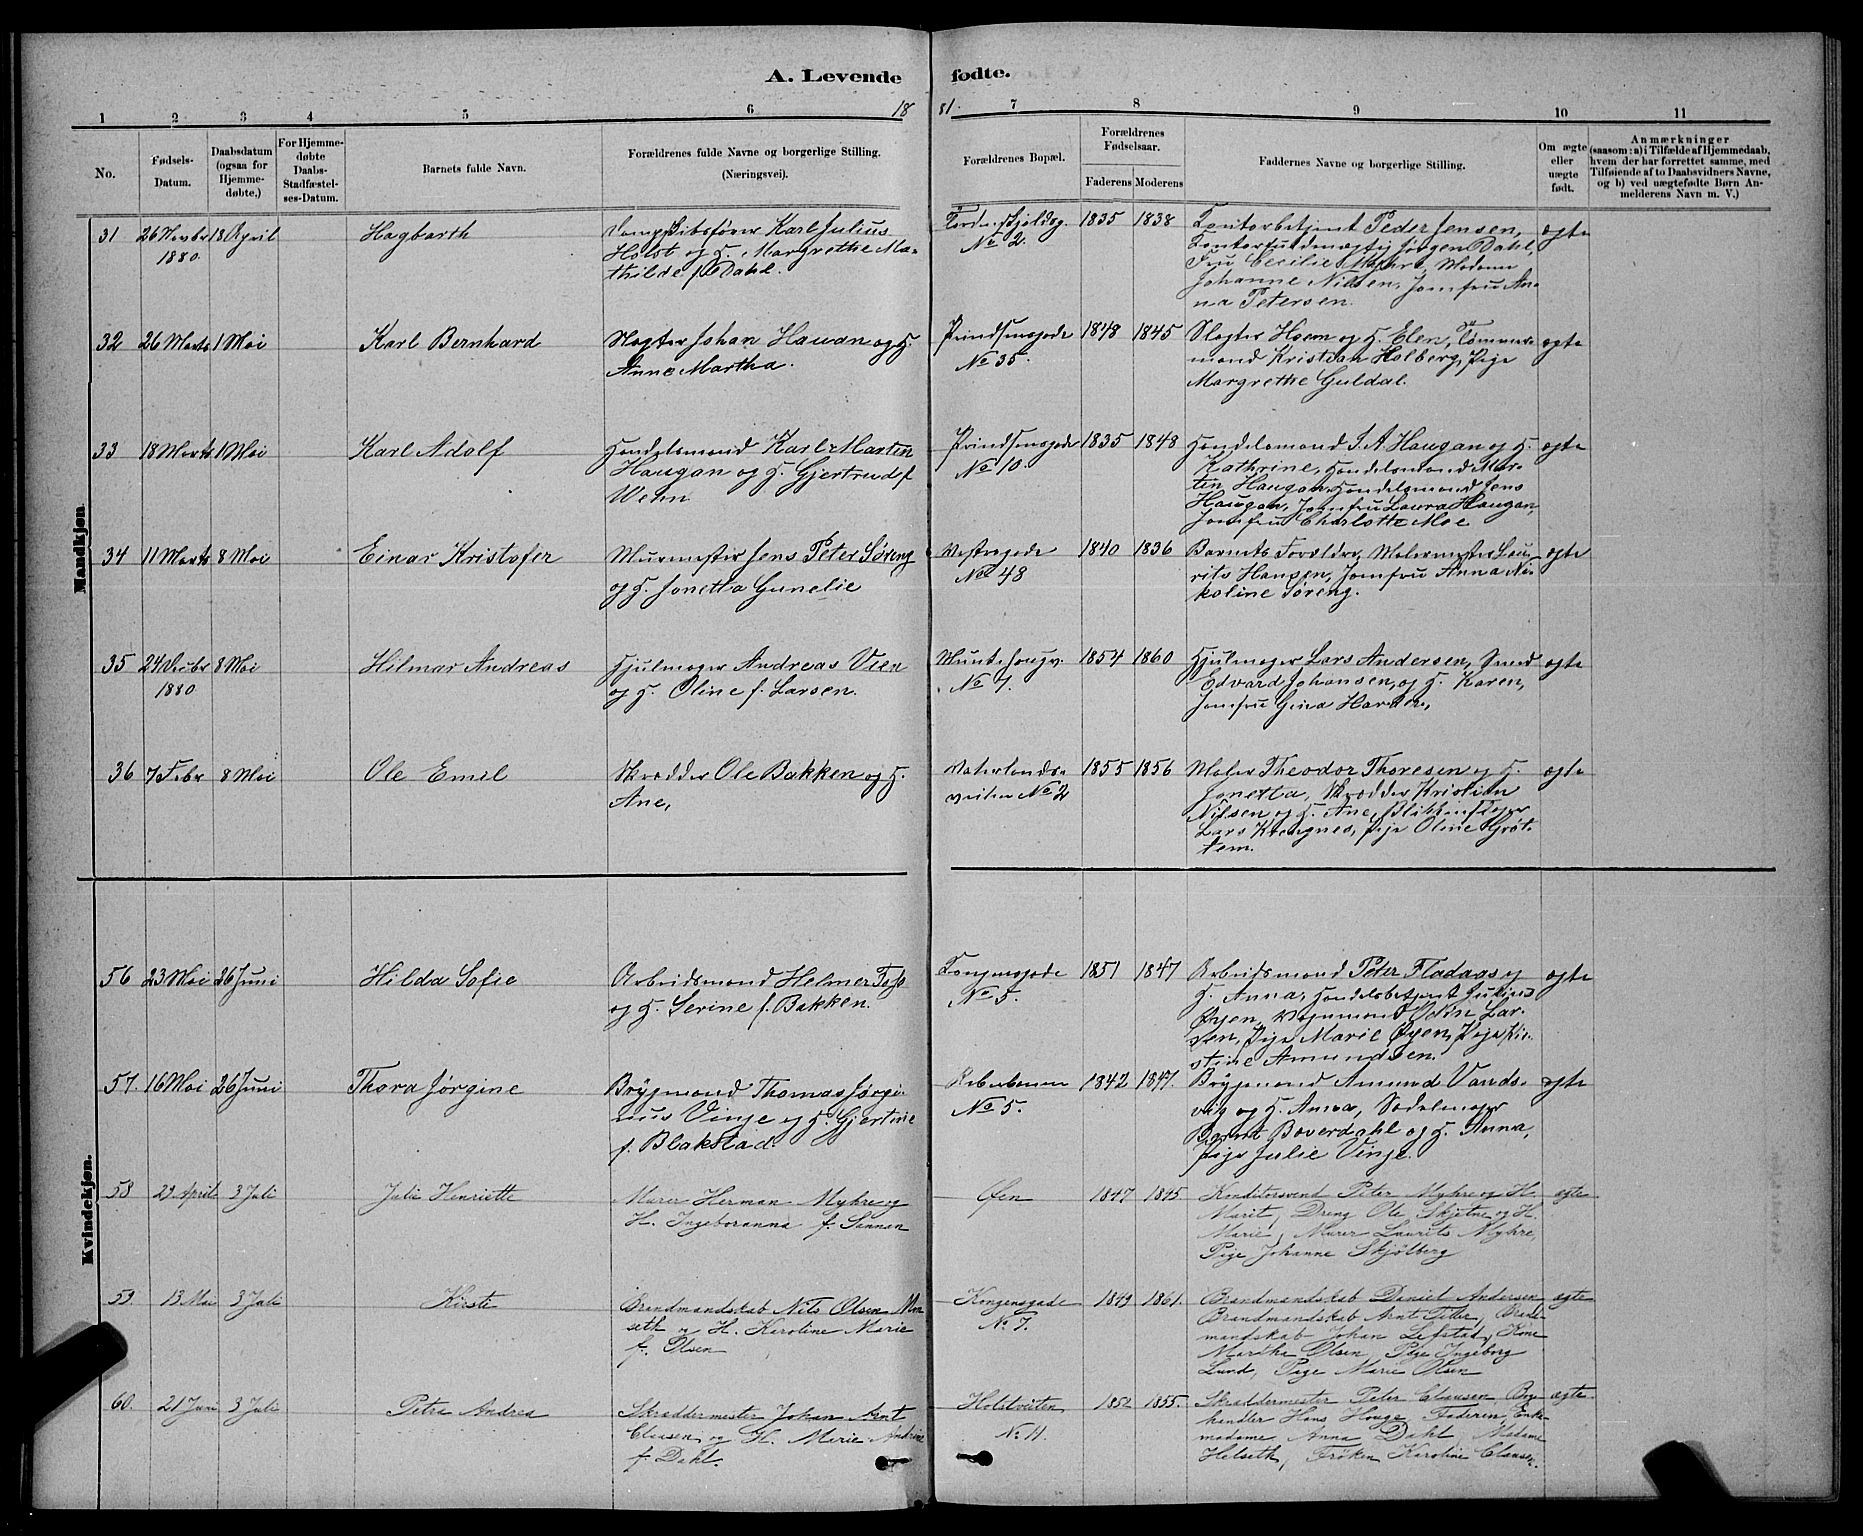 A. Levende fødte.
1881.
1 2 3 4 5 6 7 8 9 10 11
No.
Fødsels-Datum.
Daabsdatum (ogsaa for Hjemmedøbte,)
For Hjemmedøbte Daabs-Stadfæstelses-Datum.
Barnets fulde Navn.
Forældrenes fulde Navne og borgerlige Stilling.
(Næringsvei).
Forældrenes Bopæl.
Forældrenes Fødselsaar.
Faderens Moderens
Faddernes Navne og borgerlige Stilling.
Om ægte eller uægte født.
Anmærkninger
(saasom: a) i Tilfælde af Hjemmedaab,
hvem der har forrettet samme, med
Tilføiende af to Daabsvidners Navne,
og b) ved uægtefødte Børn An-
melderens Navn m. V.)
Mandkjøn.
31 26 Novbr 1880 18 April Hagbarth
Dampskibsfører Karl Julius
Holst og H. Margrethe Ma-
thilde f. Dahl.
Tordenskjoldsg.
No 2.
1835 1838
Kontorbetjent Peder Jensen,
Kontorfuldmægtig Jørgen Dahl,
Fru Cecilie Myhre, Madame
Johanne Nilsen, Jomfru An-
na Petersen.
ægte
32 26 Marts 1 Mai Karl Bernhard
Slagter Johan Hauan og H.
Anne Martha.
Prindsensgade
No 35.
1848 1845
Slagter Hoem og H. Elen, Tømmer-
mand Kristian Holberg, Pige
Margrethe Guldal.
ægte
33 18 Marts 1 Mai Karl Adolf
Handelsmand Karl Marten
Haugan og H. Gjertrud f.
Wehn
Prindsensgade
No 10.
1835 1848
Handelsmand I. A. Haugan og H.
Kathrine, Handelsmand Mar-
tin Haugan, Handelsmand Jens
Haugan, Jomfru Laura Haugan,
Jomfru Charlotte Moe
ægte
34 11 Marts 8 Mai Einar Kristofer
Murmester Jens Peter Søreng
og H. Jonetta Gunelie
Vestregade
No 48
1840 1836
Barnets Forældre, Malermester Lau-
rits Hansen, Jomfru Anna Ni-
koline Søreng.
ægte
35 24 Decbr 1880 8 Mai Hilmar Andreas
Hjulmager Andreas Vien
og H. Oline f. Larsen.
Munkhaugv.
No 7.
1854 1860
Hjulmager Lars Andersen, Smed
Edvard Johansen, og H. Karen,
Jomfru Gina
ægte
36 7 Febr 8 Mai Ole Emil
Skrædder Ole Bakken og H.
Ane,
Vaterlands-
veiten No 2
1855 1856
Maler Theodor Thoresen og H.
Jonetta, Skrædder Kristian
Nilsen og H. Ane, Blikkenslager
Lars Krengnes, Pige Oline Grøt-
tem.
ægte
Kvindekjøn.
56 23 Mai 26 Juni Hilda Sofie
Arbeidsmand Helmer
og H. Serine f. Bakken.
Kongensgade
No 5.
1851 1847
Arbeidsmand Peter Fladaas og
H. Anna, Handelsbetjent Julius
Øyen, Odin Lar-
sen, Pige Marie Øyen, Pige Kri-
stine Amundsen.
ægte
57. 16 Mai 26 Juni Thora Jørgine
Brygmand Thomas Jørgi-
nus Vinje og H. Gjertine
f. Blakstad.
Reberbanen
No 5.
1842 1847.
Brygmand Amund Vands-
vig og H. Anna, Sadelmager
Bernt Boverdahl og H. Anna,
Pige Julie Vinje.
ægte
58 29 April 3 Juli Julie Henriette
Murer Herman Myhre og
H. Ingeboranna f. Sannan
Øen
1847 1845
Konditorsvend Peter Myhre og H.
Marit, Dreng Ole Skjetne og H.
Marie, Murer Laurits Myhre,
Pige Johanne Skjølberg
ægte
59. 13 Mai 3 Juli Kirsti
Brandmandskab Nils Olsen Mo-
seth og H. Karoline Marie
f. Olsen
Kongensgade
No 7.
1849 1861.
Brandmandskab Daniel Andersen
Brandmandskab Arnt Teller, Brand-
mandskab Johan Lefstad, Kone
Martha Olsen, Pige Ingeborg
Lund, Pige Marie Olsen
ægte
60. 21 Juni 3 Juli Petra Andrea
Skræddermester Johan Arnt
Clausen og H. Marie Andrine
f. Dahl.
Holstveiten
No 11.
1852 1855.
Skræddermester Peter Clausen Bog-
handler Hans Houge, Faderen, Enke-
madame Anna Dahl, Madame
Helseth, Frøken Karoline Clausen.
ægte